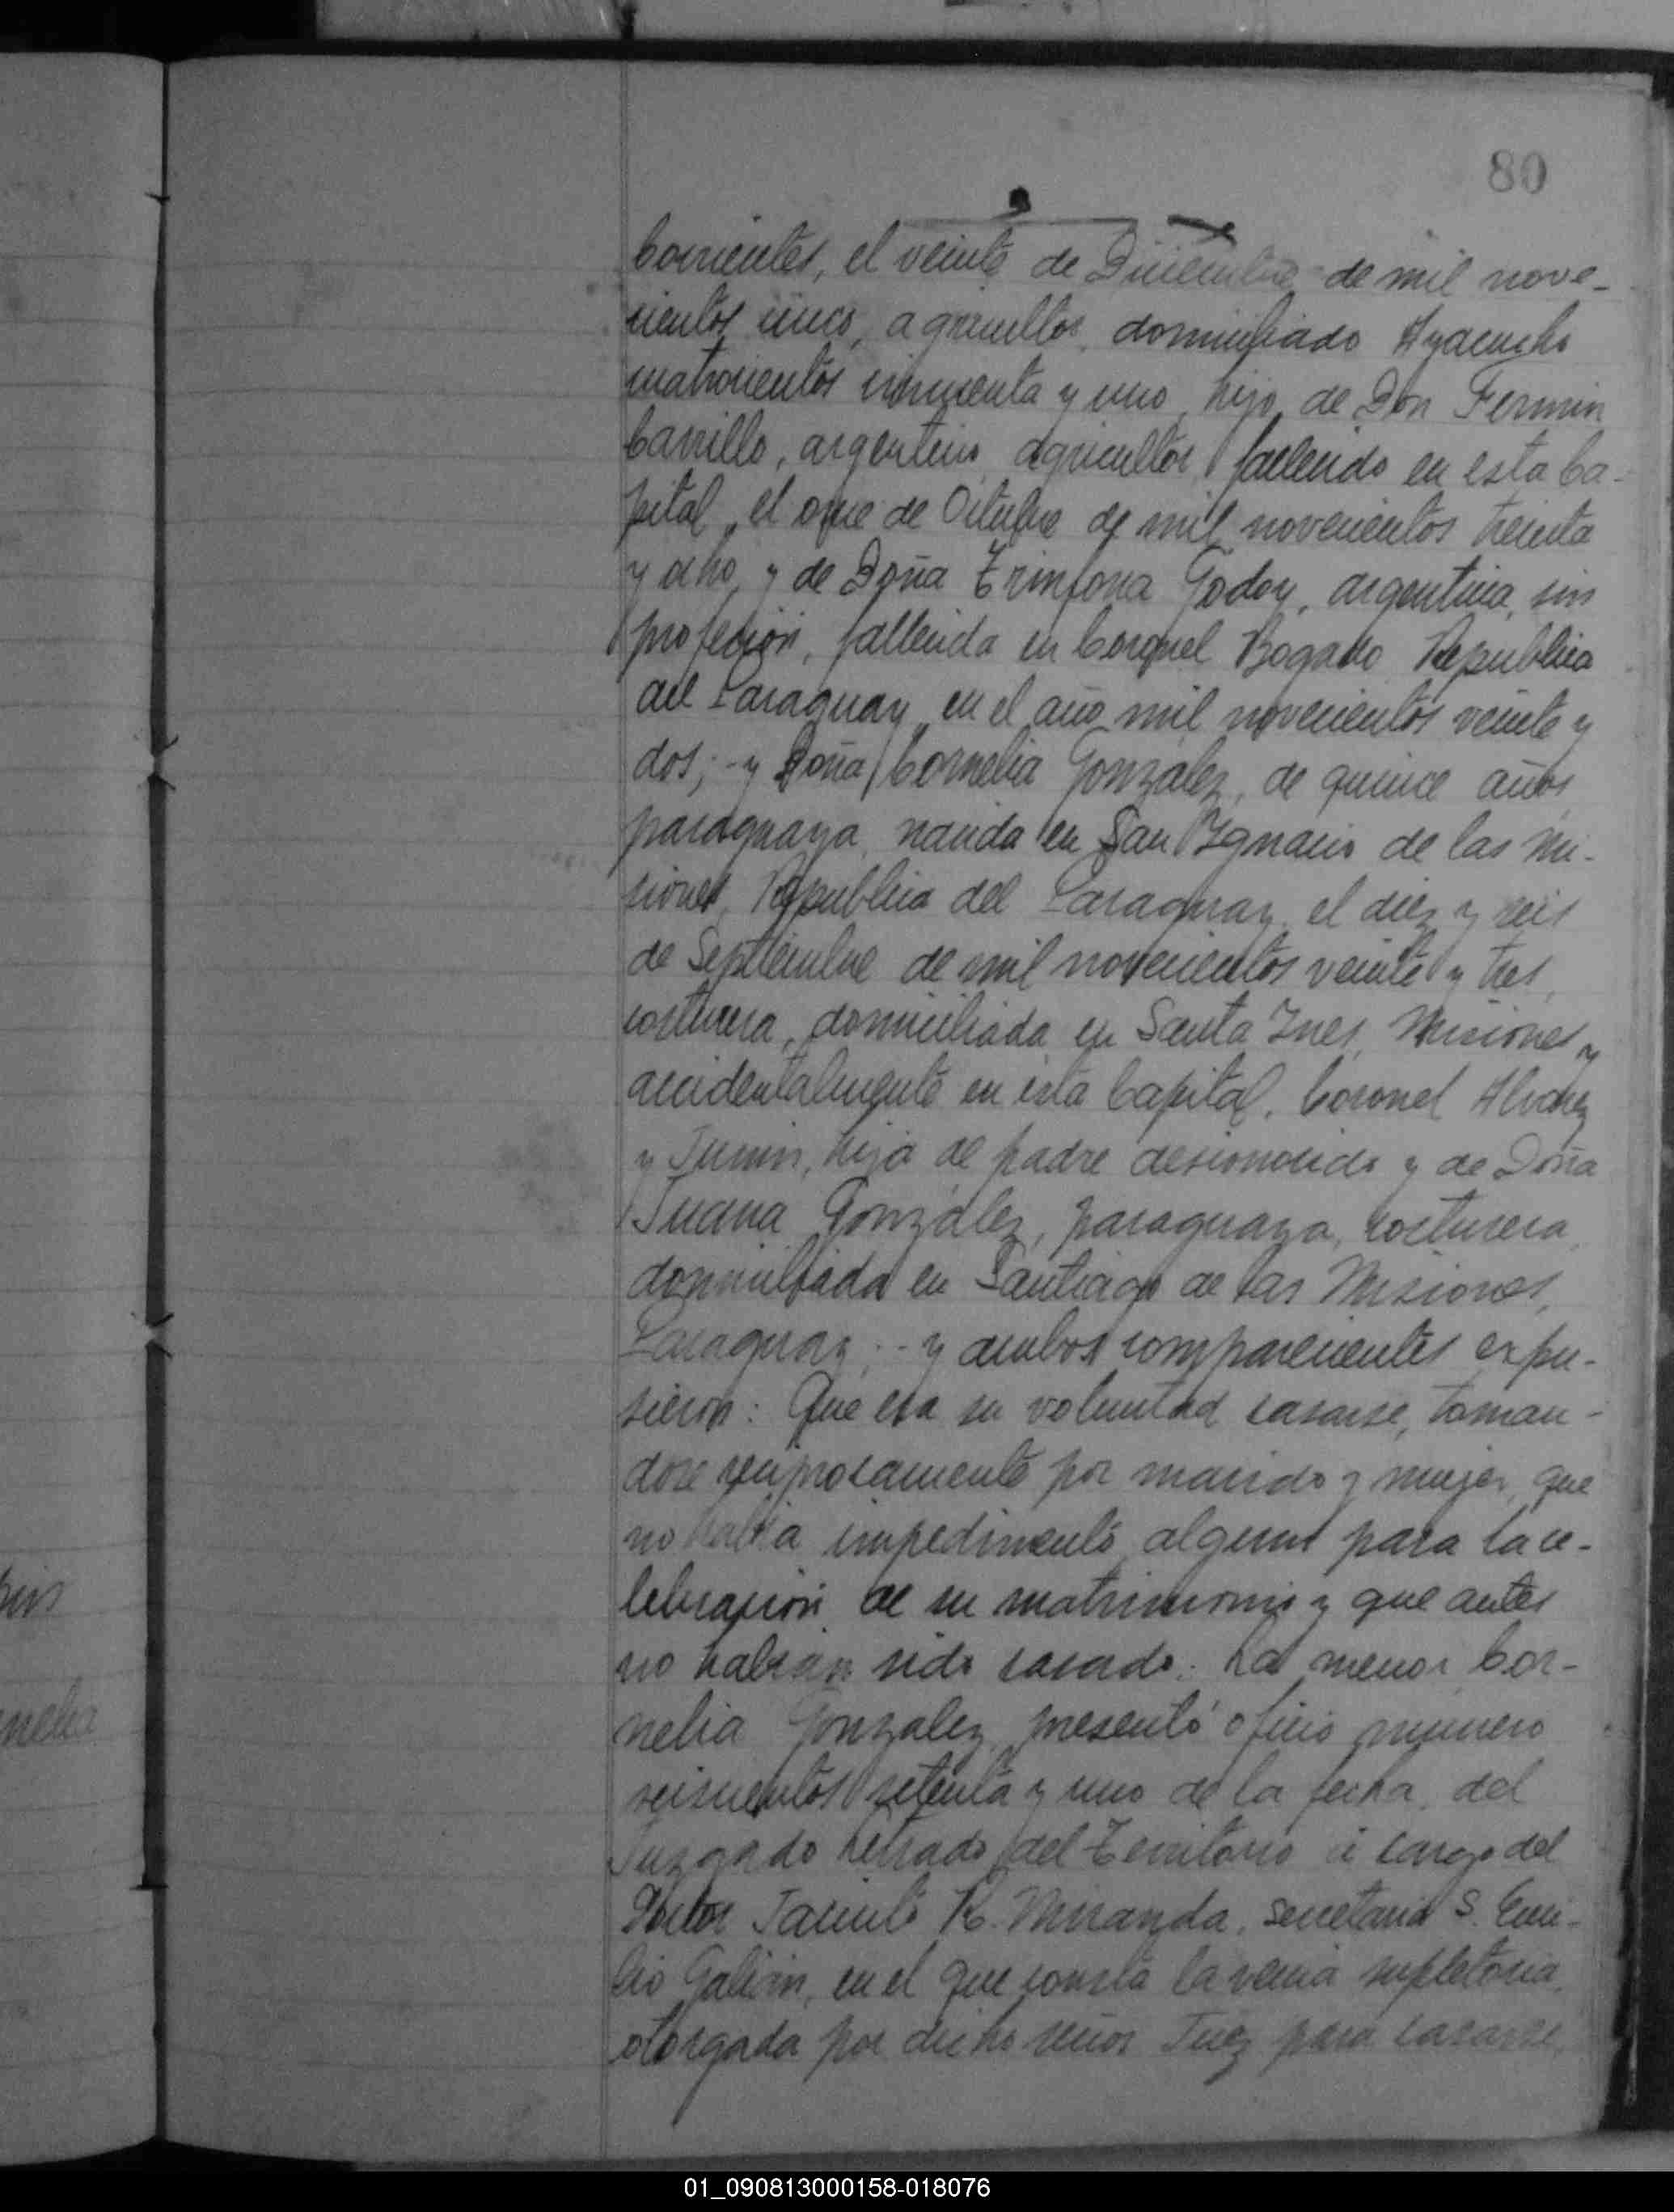 80
Corrientes, el veinte de Diciembre de mil nove-
cientos cinco, agricultor, domiciliado Ayacucho
cuatrocientos cincuenta y uno, hijo de Don Fermin
Carrillo, argentino, agricultor, fallecido en esta Ca-
pital, el once de Octubre de mil novecientos treinta
y ocho, y de Doña Trinfona Godoy, argentina, sin
profesión, fallecida en Coronel Bogado, Republica
del Paraguay, en el año mil novecientos veinte y
dos; - y Doña Cornelia Gonzalez, de quince años,
paraguaya, nacida en San Ygnacio de las Mi-
siones, Republica del Paraguay, el diez y seis
de Septiembre de mil novecientos veinte y tres,
costurera, domiciliada en Santa Ines, Misiones y
accidentalmente en esta Capital, Coronel Alvarez
y Junin, hija de padre desconocido y de Doña
Juana Gonzalez, paraguaya, costurera,
domiciliada en Santiago de las Misiones,
Paraguay; - y ambos comparecientes expu-
sieron: Que era su voluntad casarse, toman-
dose reciprocamente por marido y mujer, que
no habia impedimento alguno para la ce-
lebración de su matrimonio y que antes
no habian sido casado. La menor Cor-
nelia Gonzalez presentó oficio numero
seiscientos setenta y uno de la fecha, del
Juzgado Letrado del Territorio á cargo del
Doctor Jacinto R. Miranda, secretaria S. Emi-
lio Galian, en el que consta la venia supletoria,
otorgada por dicho señor Juez para casarse,
nelia
01_090813000158-018076